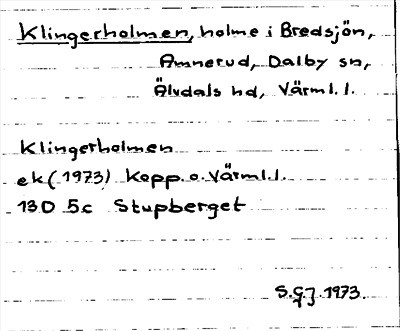 Klingerholmen, holme i Bredsjön,
Amnerud, Dalby sn,
Älvdals hd, Värml. l.
Klingerholmen
ek (1973) Kopp. o. Värml. l.
13D 5c Stupberget
S.G.J. 1973